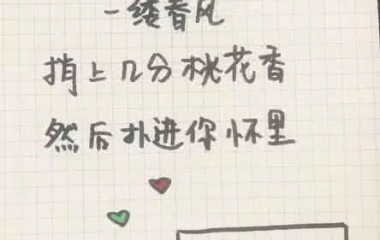 一缕春风
捎上几分桃花香
然后扑进你怀里